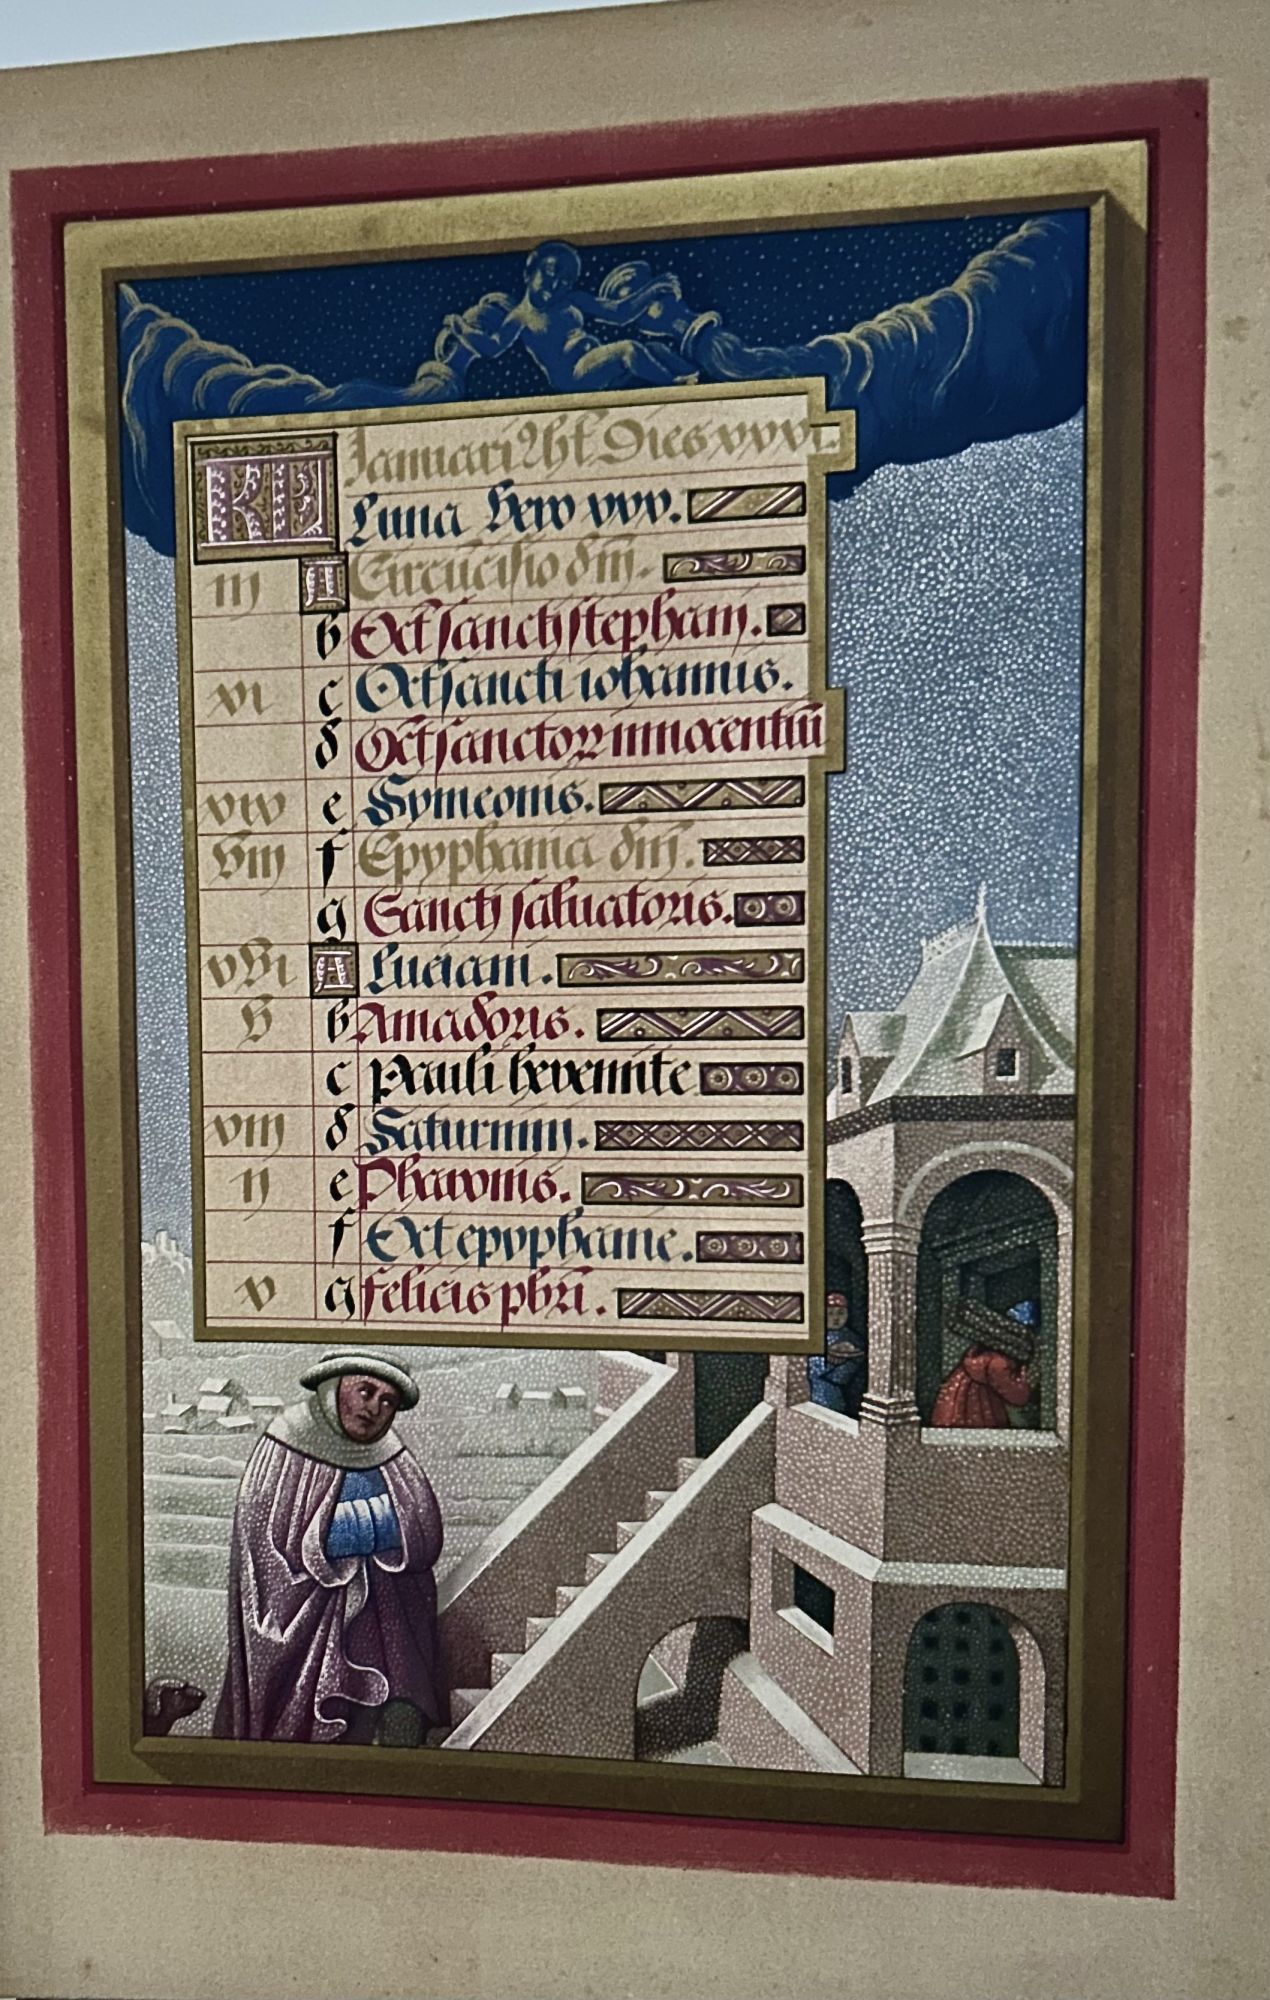 KL Januariꝰ hꝫ Dies xxxi.
Luna vero xxx.
iij A Circūcisio dñi.
b Oct sancti stephani.
xi c Oct sancti iohannis.
d Oct sanctoꝝ innocentiū
xix e Symeonis.
viij f Epyphania dñi.
g Sancti saluatoris.
xvi A Luciani.
v b Amadoris.
c Pauli heremite
xiij d Saturnini.
ij e
f Oct epyphanie.
x g felicis pbri.